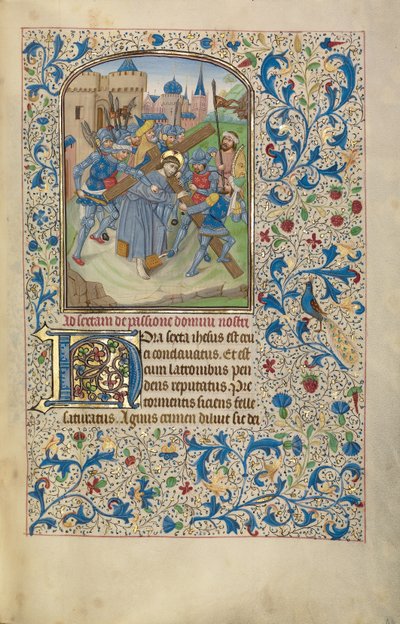 Ad sextam de passione domini nostri
Hora sexta ihesus est cru
ci conclavatus. Et est
cum latronibus pen
dens reputatus. Pre
tormentis siciens felle
saturatus. Agnus crimen diluit sic dei